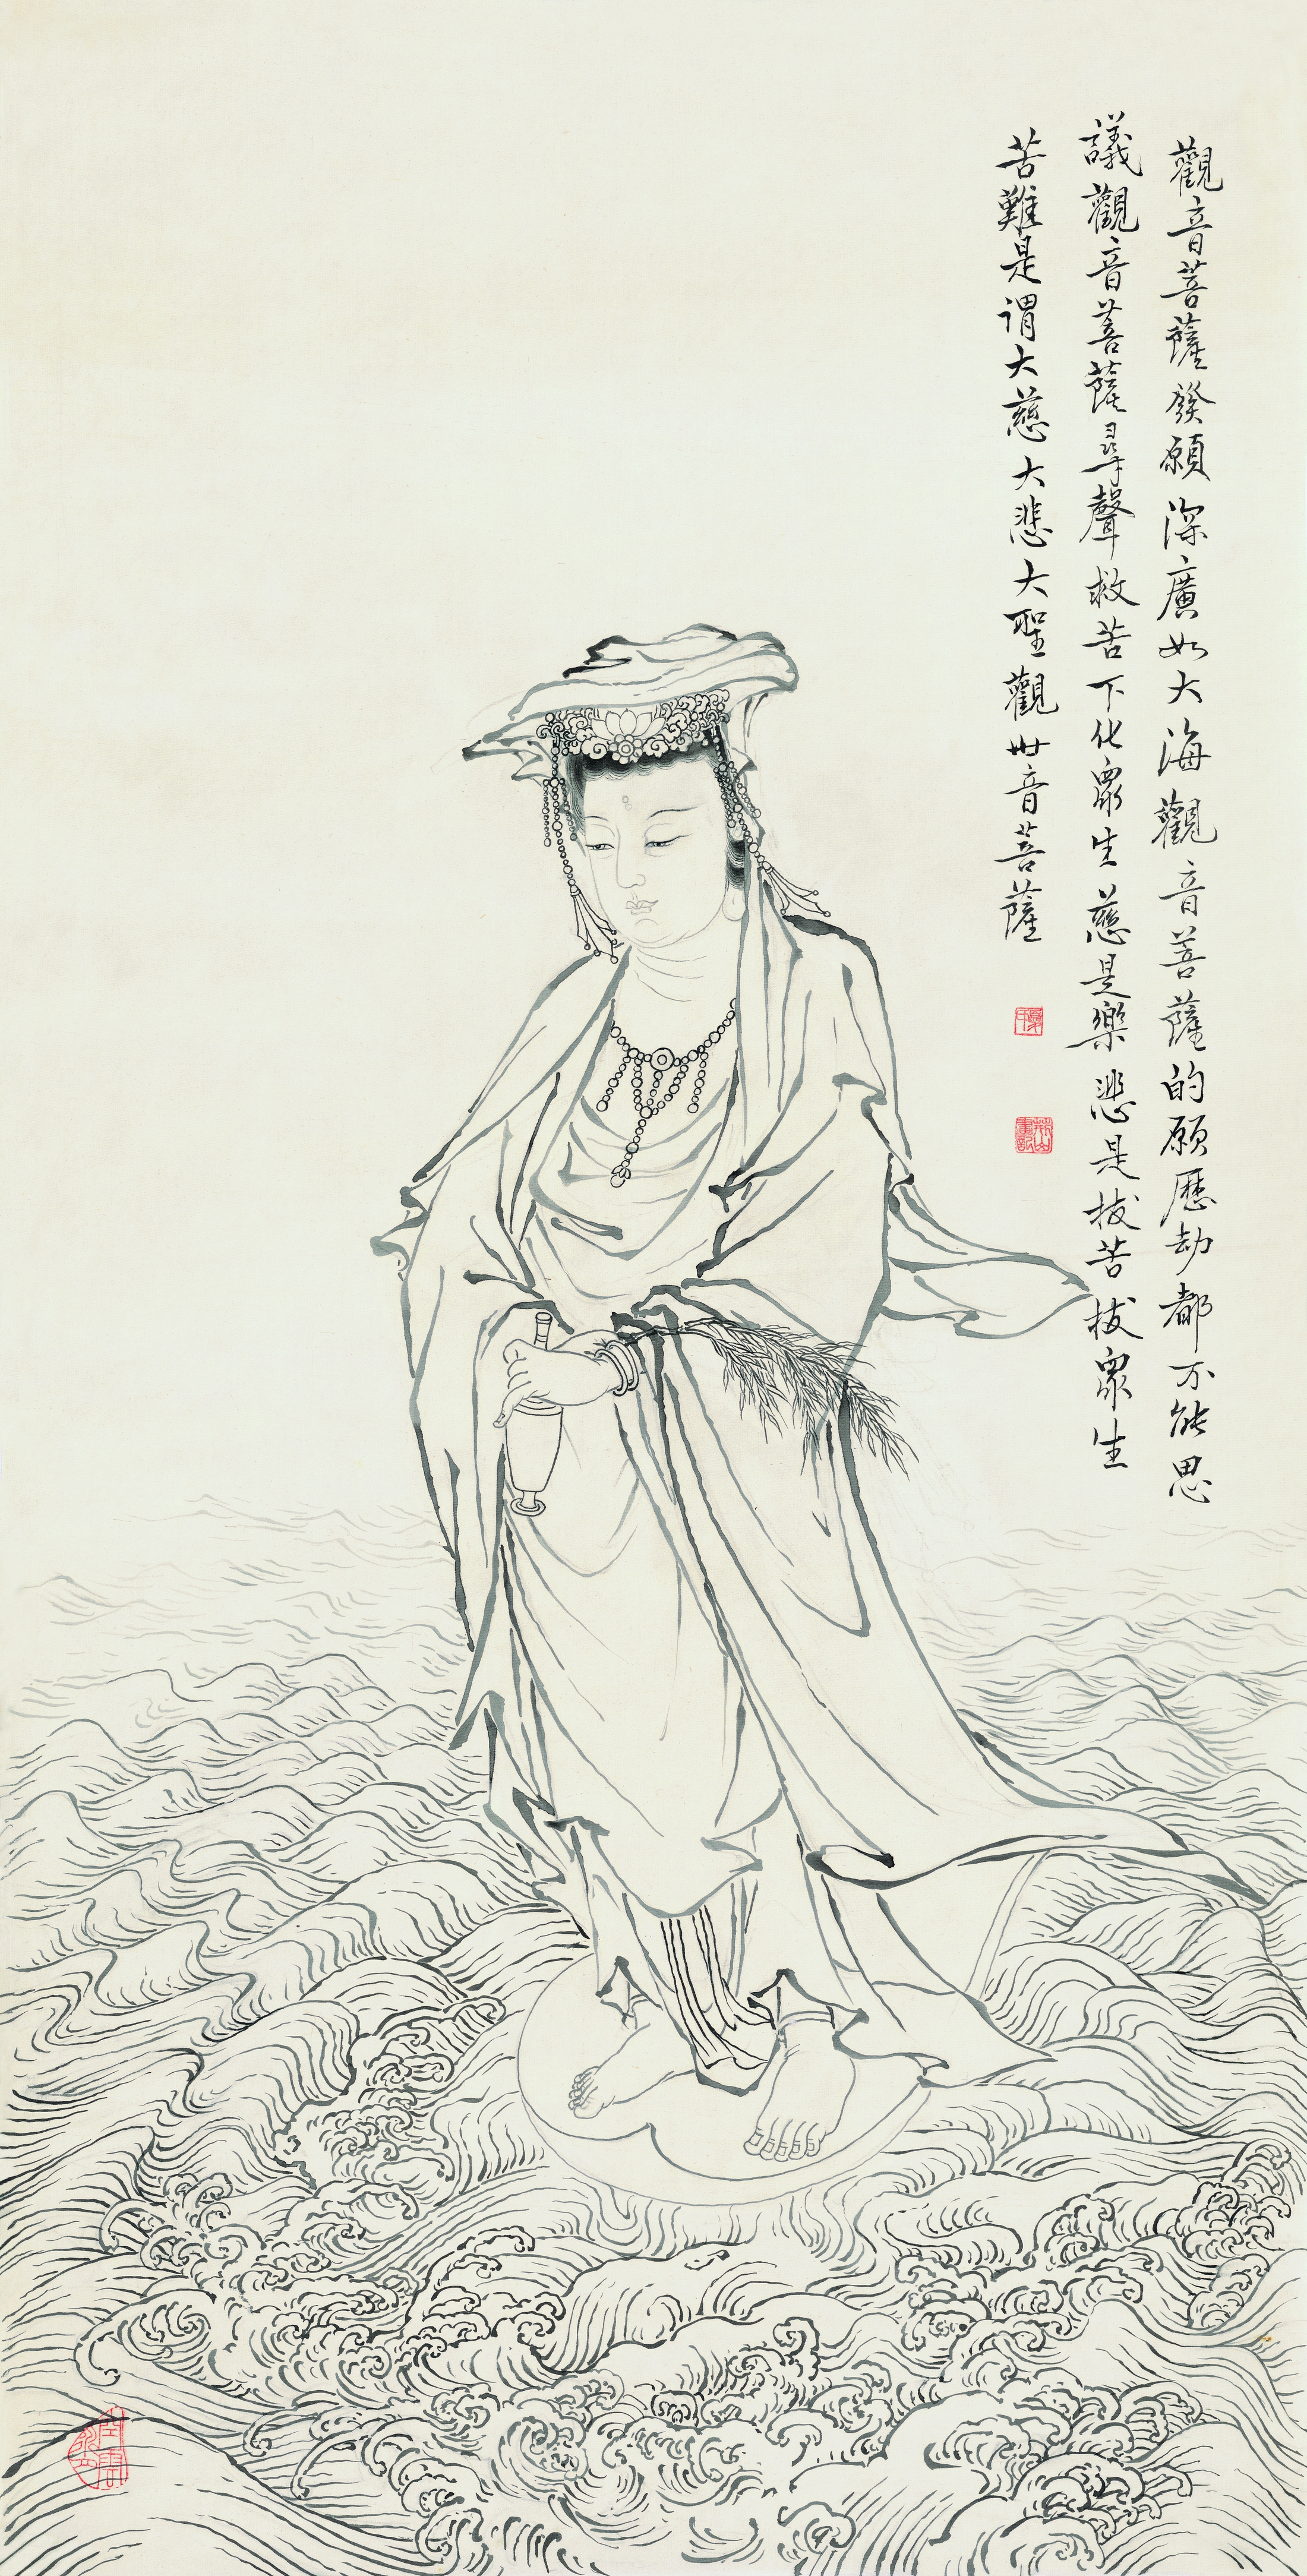 觀音菩薩發願深廣如大海觀音菩薩的願歷劫都不能思
議觀音菩薩尋聲救苦下化眾生慈是樂悲是拔苦拔眾生
苦難是謂大慈大悲大聖觀世音菩薩